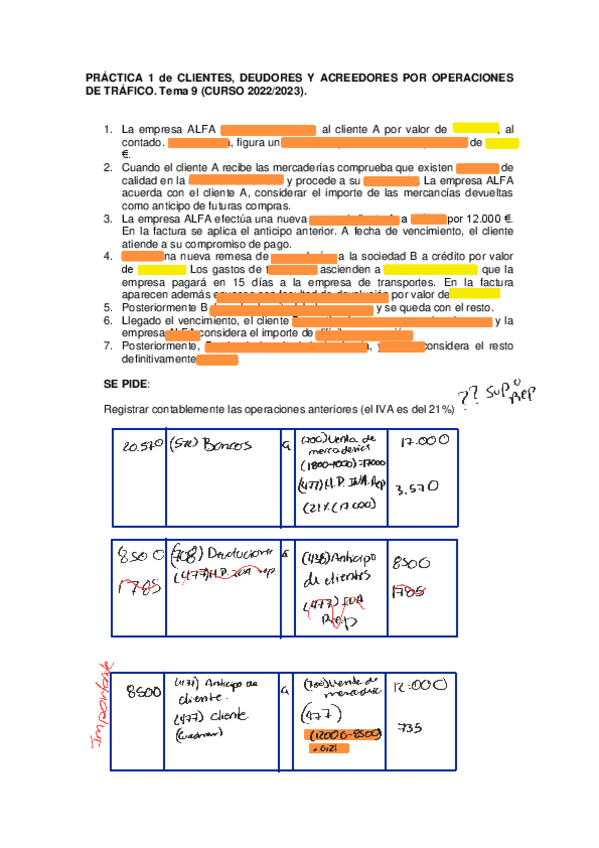 PRÁCTICA 1 de CLIENTES, DEUDORES Y ACREEDORES POR OPERACIONES
DE TRÁFICO. Tema 9 (CURSO 2022/2023).
1. La empresa ALFA al cliente A por valor de , al
contado. a, figura un de
€.
2. Cuando el cliente A recibe las mercaderías comprueba que existen de
calidad en la y procede a su . La empresa ALFA
acuerda con el cliente A, considerar el importe de las mercancías devueltas
como anticipo de futuras compras.
3. La empresa ALFA efectúa una nueva a por 12.000 €.
En la factura se aplica el anticipo anterior. A fecha de vencimiento, el cliente
atiende a su compromiso de pago.
4. na nueva remesa de a la sociedad B a crédito por valor
de . Los gastos de ascienden a que la
empresa pagará en 15 días a la empresa de transportes. En la factura
aparecen además por valor de
5. Posteriormente B y se queda con el resto.
6. Llegado el vencimiento, el cliente y la
empresa considera el importe de
7. Posteriormente, , y considera el resto
definitivamente
SE PIDE:
Registrar contablemente las operaciones anteriores (el IVA es del 21%) ??
20.570 (572) Bancos a (700) Venta de 17.000
mercaderies
(1800-1000)=17000
(477) H.P. IVA Rep 3.570
(21% (17.000)
8500 (708) Devoluciones a (438) Anticipo 8500
1785 (477) H.P. IVA rep. de clientes 1785
(477) IVA
Rep
Importante
8500 (438) Anticipo de a (700) Vente de 12.000
cliente. mercader
(477) cliente (477) 735
(12000-8500)
· 0'21